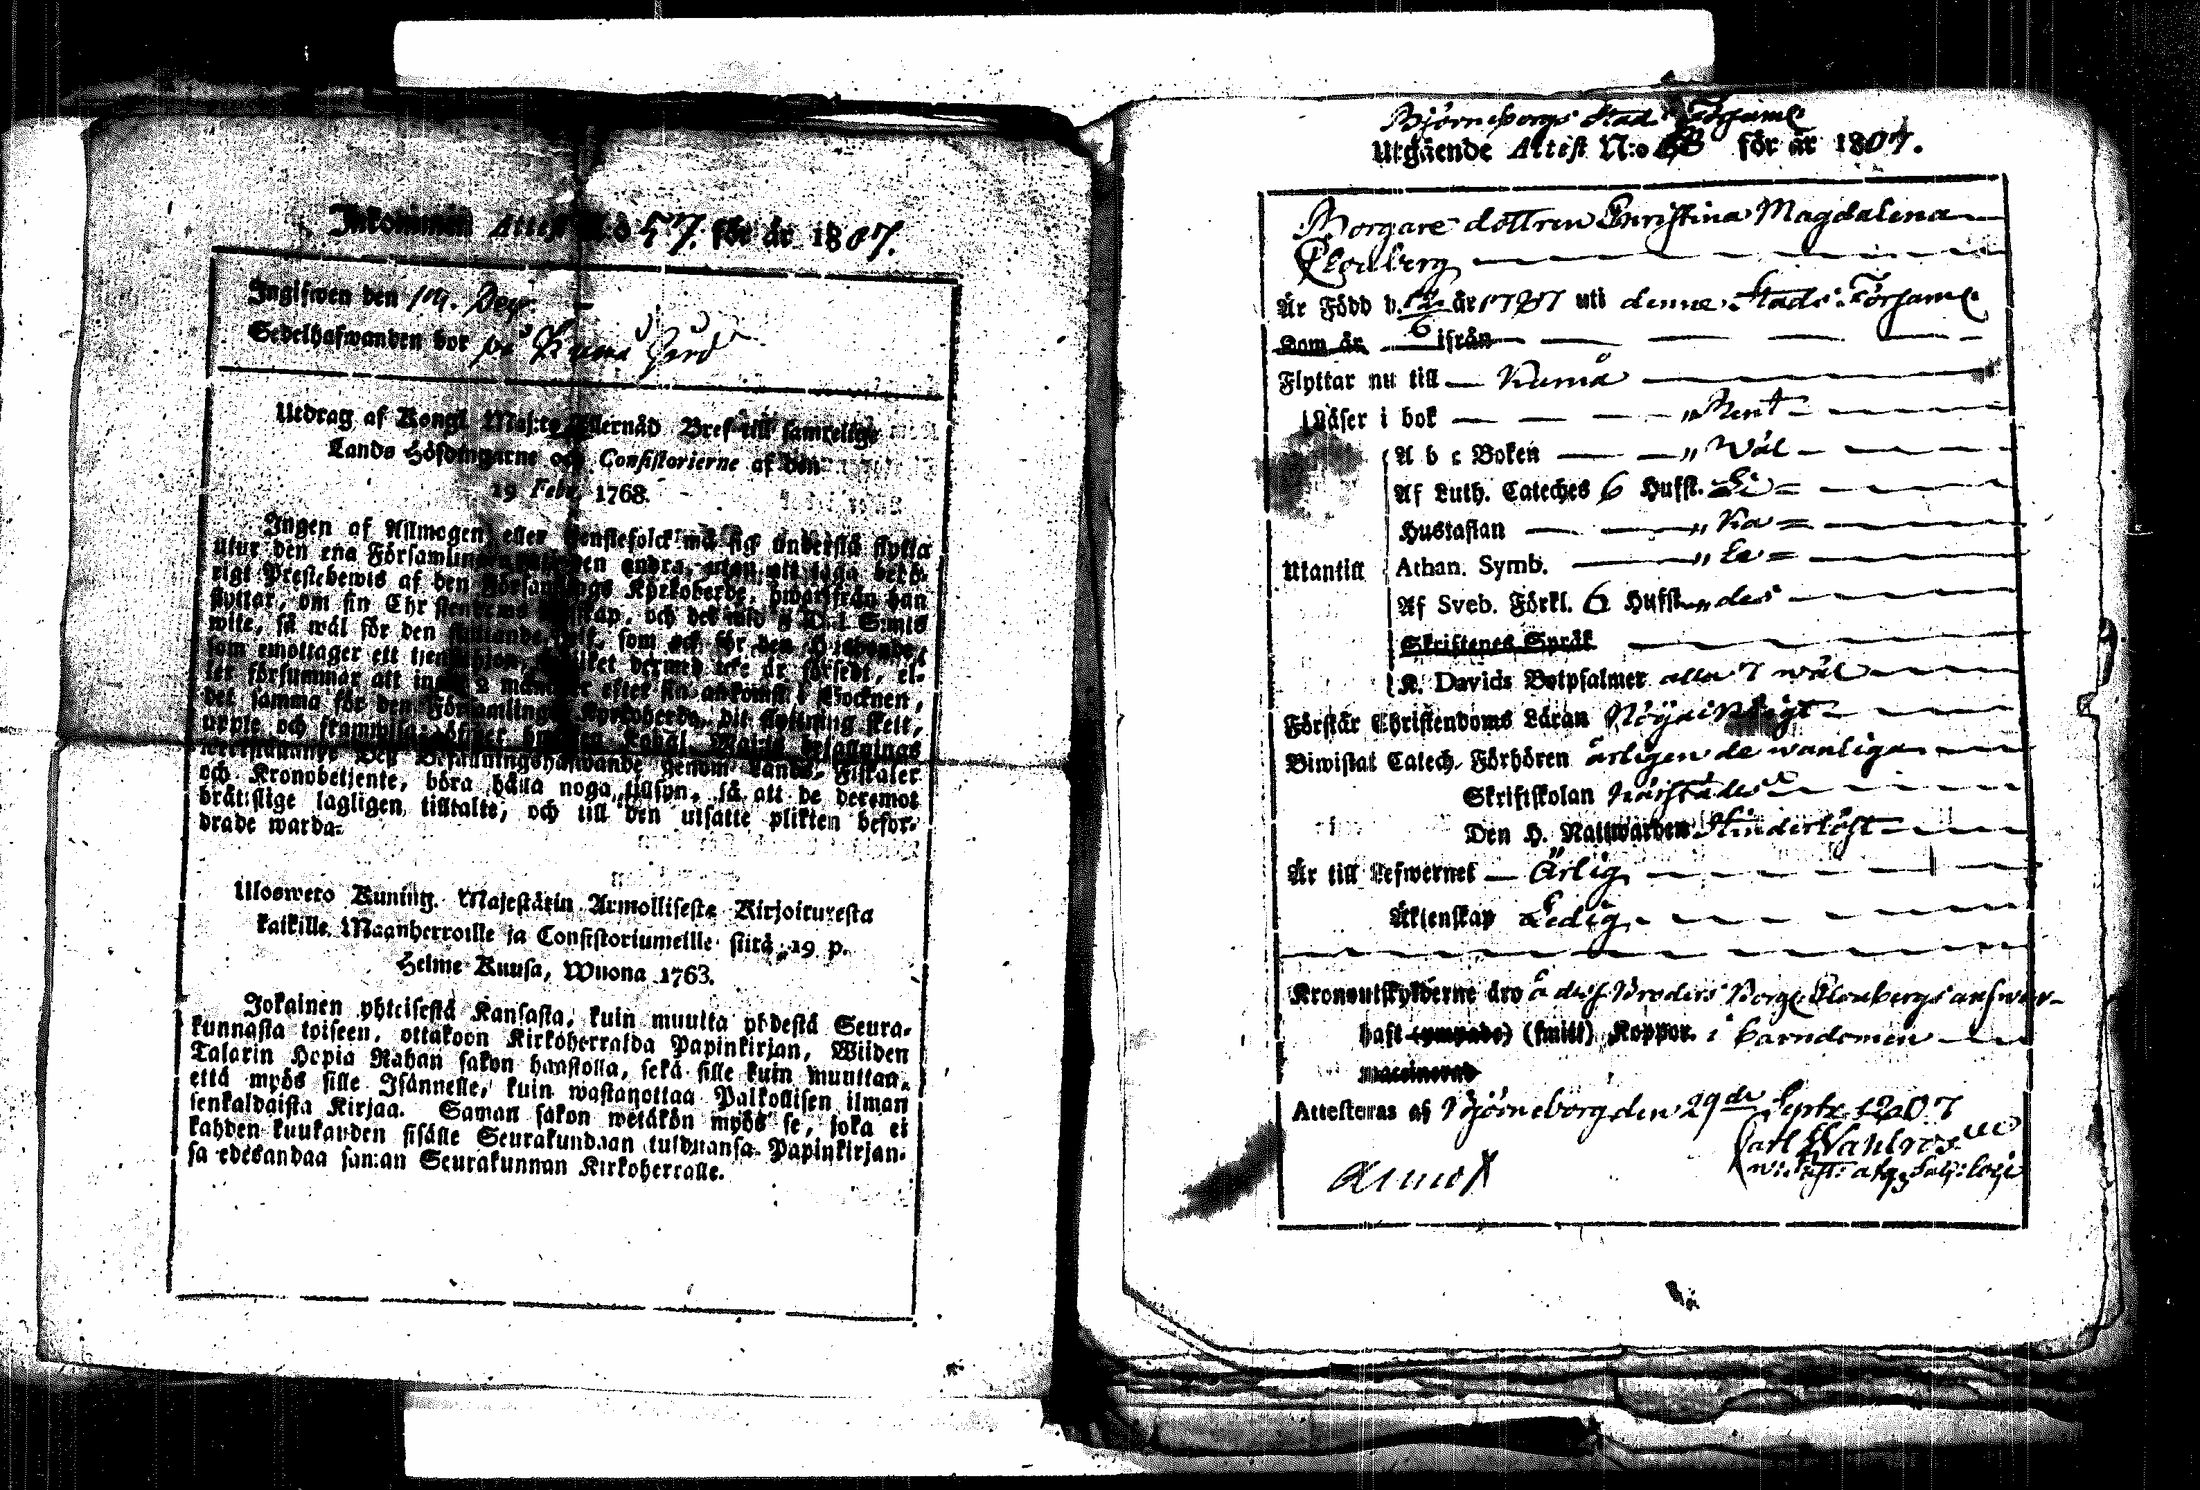 Inkommen Attest N:o 57. för år 1807.
Ingifwen den 19. Dec:
Sedelhafwanden bor på Kumå Gård
Utdrag af Kongl. Maj:ts Allernåd Bref till samtelige
Lands Höfdingarne och Consistorierne af den
19 Febr. 1768.
Ingen af Allmogen eller tjenstefolck må sig understå flytta
utur den ena Församlingen till den andra, utan att taga behö-
rigt Prestebewis af den Församlings Kyrkoherde, hwarifrån han
flyttar, om sin Christendoms kunskap, och det wid 5 Dal. S:mts
wite, så wäl för den flyttande sielf, som ock för den Husbonde,
som emottager ett tjenstehjon, hwilket dermed icke är försedt, el-
ler försummar att innom 2 månader efter sin ankomst i Socknen,
det samma för den Församlings Kyrkoherde, dit flyttning skett,
uppte och framwisa; öfwer hwilket Kongl. Maj:ts befallnings
wederbörande Befallningshafwande genom Lands-Fiskaler
och Kronobetjente, böra hålla noga tillsyn, så att de deremot
brätslige lagligen tilltalte, och till den utsatte plikten befor-
drade warda.
Uloswero Kuning. Majestätin Armollisesta Kirjoituxesta
kaikille Maanherroille ja Consistoriumeille siitä 19 p.
Helme Kuusa, Wuona 1763.
Jokainen yhteisestä Kansasta, kuin muutta yhdestä Seura-
kunnasta toiseen, ottakoon Kirkoherralda Papinkirjan, Wiiden
Talarin Hopia Rahan sakon haastolla, sekä sille kuin muuttaa,
että myös sille Isännelle, kuin wastanottaa Palkollisen ilman
senkaldaista Kirjaa. Saman sakon wetäkön myös se, joka ei
kahden kuukauden sisälle Seurakundaan tulduansa Papinkirjan-
sa edesandaa saman Seurakunnan Kirkoherralle.
Björneborgs Stads Församl
Utgående Attest N:o 68 för år 1807.
Borgare dottren Christina Magdalena
Clouberg
Är Född d. 12/6 år 1787 uti denne Stads Församl
Kom år ifrån
Flyttar nu till Kumå
Läser i bok Rent
A b c Boken Wäl
Af Luth. Cateches 6 Hufst. Li=
Hustaflan Ka=
Utantill Athan. Symb. Le=
Af Sveb. Förkl. 6 Hufst. des
Skriftenes Språk
K. Davids Botpsalmer alla 7 wäl
Förstår Christendoms Läran Nöijaktigt
Biwistat Catech. Förhören årligen de wanliga
Skriftskolan
Den H. Nattwarden Hinderlöst
Är till Lefwernet Ärlig
Äktenskap Ledig
Kronoutskylderne äro å dess Broders Borg. Cloubergs answar
haft (ympade) (smitt) Koppor. i barndomen
vaccinerad
Attesteras af Björneborg den 29de Septr. 1807
Carl Wahlroos